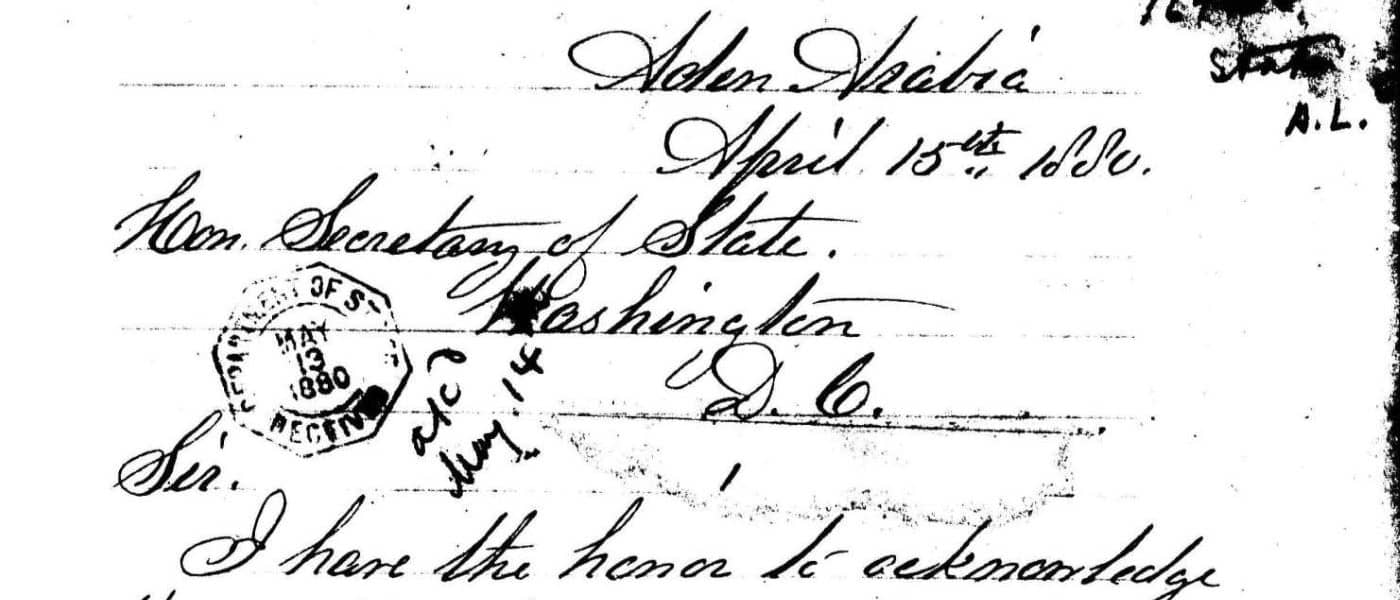 State
A.L.
Aden Arabia
April 15th 1880.
Hon. Secretary of State.
Washington
D. C.
DEPARTMENT OF ST
MAY
13
1880
RECEIV
May 14
Sir.
I have the honor to acknowledge